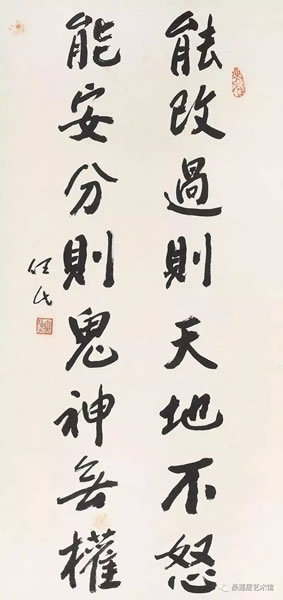 能改過則天地不怒
能安分則鬼神無權
桑莲居艺术馆